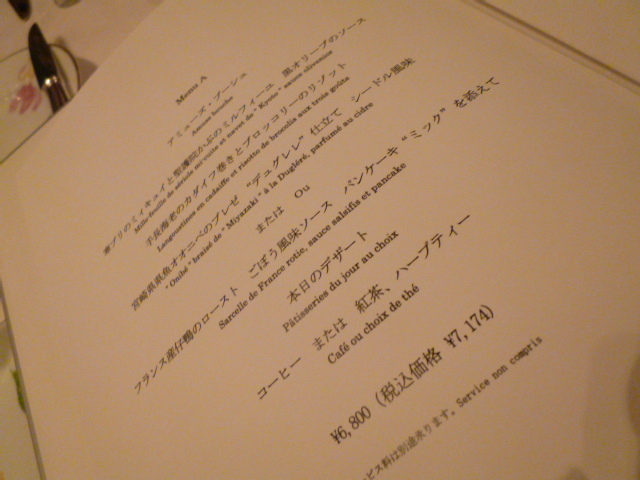 Menu A
アミューズ・ブーシュ
Amuse bouche
寒ブリのミ・キュイと聖護院かぶのミルフィーユ　黒オリーブのソース
Mille-feuille de sériole mi-cuite et navet de "Kyoto" sauce olivenoire
手長海老のカダイフ巻きとブロッコリーのリゾット
Langoustines en cadaiffe et risotto de brocolis aux trois goûts
宮崎県県魚オオニベのブレゼ "デュグレレ" 仕立て　シードル風味
"Onibé" braisé de "Miyazaki" à la Dugléré, parfumé au cidre
または　Ou
フランス産仔鴨のロースト　ごぼう風味ソース　パンケーキ "ミック" を添えて
Sarcelle de France rotie, sauce salsifis et pancake
本日のデザート
Pâtisseries du jour au choix
コーヒー　または　紅茶、ハーブティー
Café ou choix de thé
¥6,800 (税込価格 ¥7,174)
ービス料は別途承ります。Service non compris